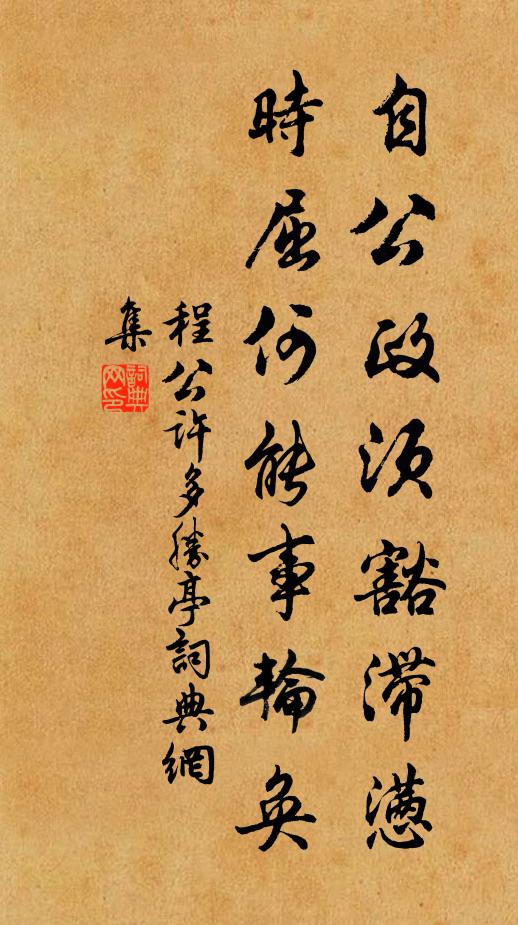 自公政須豁滯懑
時屈何能事輪奐
程公許多勝亭詞典網
集
詞典網印